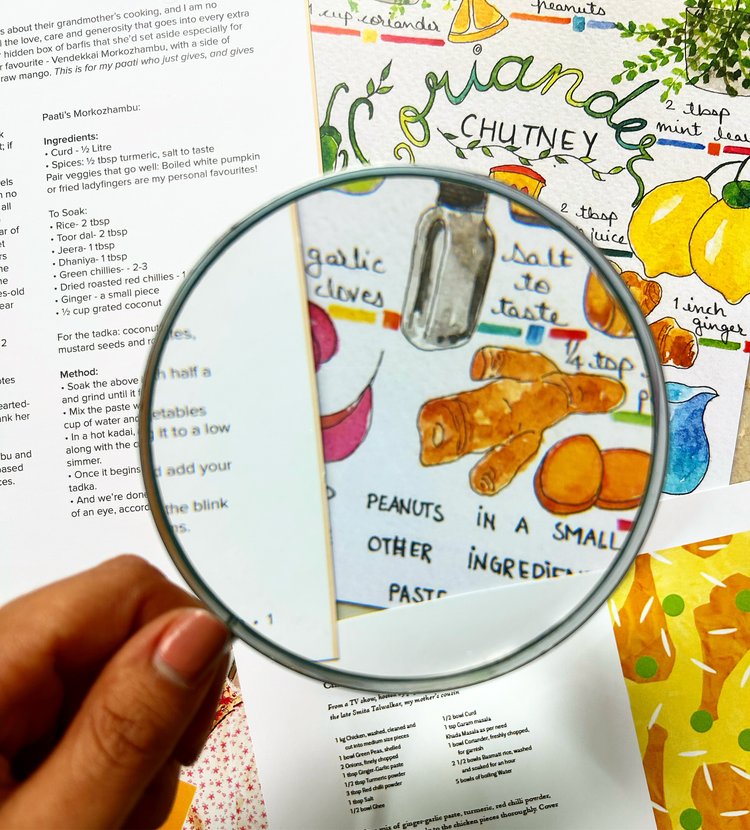 s about their grandmother's cooking, and I am no
the love, care and generosity that goes into every extra
hidden box of barfis that she'd set aside especially for
favourite - Vendekkai Morkozhambu, with a side of
raw mango. This is for my paati who just gives, and gives
Paati's Morkozhambu:
Ingredients:
• Curd - ½ Litre
• Spices: ½ tbsp turmeric, salt to taste
Pair veggies that go well: Boiled white pumpkin
or fried ladyfingers are my personal favourites!
To Soak:
• Rice- 2 tbsp
• Toor dal- 2 tbsp
• Jeera- 1 tbsp
• Dhaniya- 1 tbsp
• Green chillies- - 2-3
• Dried roasted red chillies - 1
• Ginger - a small piece
• ½ cup grated coconut
For the tadka: coconut
mustard seeds and
Method:
• Soak the above
and grind until it
• Mix the paste w
cup of water and
• In a hot kadai,
along with the
simmer.
• Once it begins
tadka.
• And we're done
of an eye, accord
half a
etables
it to a low
add your
the blink
• 1
1 cup coriander
peanuts
Coriander
CHUTNEY
2 tbsp
mint
2 tbsp
juice
1 inch
ginger
garlic
cloves
salt
to
taste
¼ tsp
PEANUTS IN A SMALL
OTHER INGREDIEN
PASTE
From a TV show, hosted
the late Smita Talwalkar, my mother's cousin
1 kg Chicken, washed, cleaned and
cut into medium size pieces
1 bowl Green Peas, shelled
2 Onions, finely chopped
1 tbsp Ginger-Garlic paste
1/2 tbsp Turmeric powder
3 tbsp Red chilli powder
1 tbsp Salt
1/2 bowl Ghee
1/2 bowl Curd
1 tsp Garam masala
Khada Masala as per need
1 bowl Coriander, freshly chopped,
for garnish
2 1/2 bowls Basmati rice, washed
and soaked for an hour
5 bowls of boiling Water
mix of ginger-garlic paste, turmeric, red chilli powder,
to the chicken pieces thoroughly. Cover